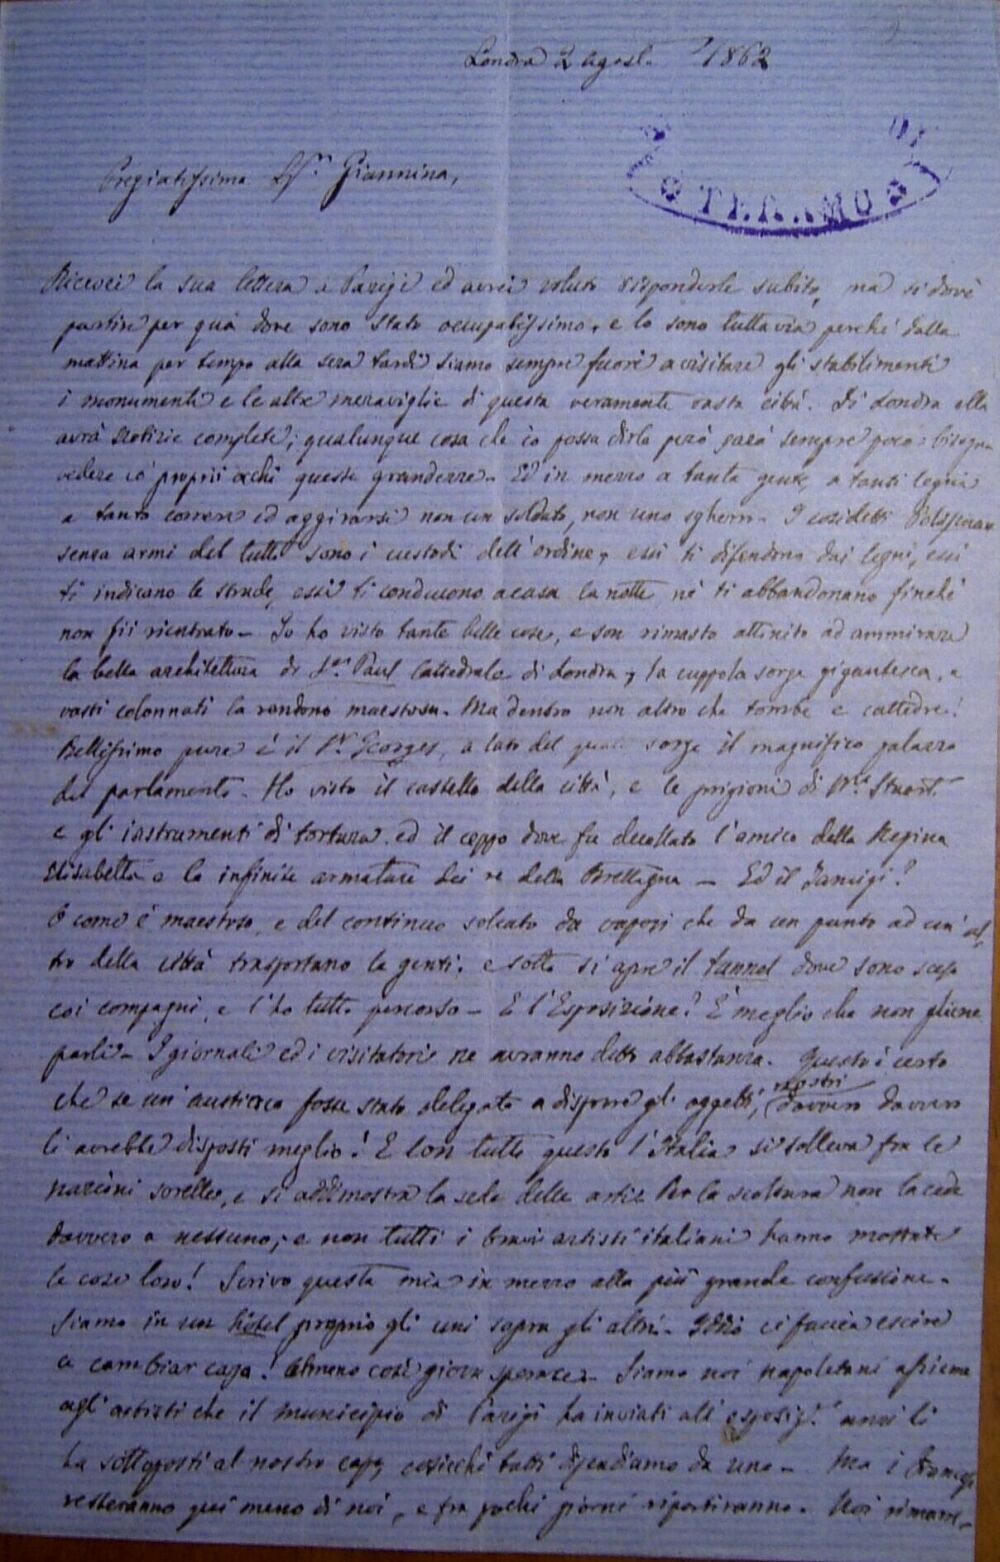 Londra 2 Agosto 1862
DI
TERAMO
Pregiatissima Sigra. Giannina,
Ricevei la sua lettera a Parigi ed avrei voluto risponderle subito, ma si dové
partire per quà dove sono stato occupatissimo, e lo sono tuttavia perché dalla
mattina per tempo alla sera tardi siamo sempre fuori a visitare gli stabilimenti
i monumenti e le altre meraviglie di questa veramente vasta città. Di Londra ella
avrà notizie complete; qualunque cosa che io possa dirle però sarà sempre poco: bisogna
vedere co' proprii occhi queste grandezze. Ed in mezzo a tanta gente, a tanti legni
a tanto correre ed aggirarsi non un soldato, non uno sgherro. I cosidetti
senza armi del tutto sono i custodi dell'ordine, essi ti difendono dai legni, essi
ti indicano le strade, essi ti conducono a casa la notte, nè ti abbandonano finchè
non sii rientrato. Io ho visto tante belle cose, e son rimasto attonito ad ammirare
la bella architettura di Sn. Paul Cattedrale di Londra, la cuppola sorge gigantesca, e
vasti colonnati la rendono maestosa. Ma dentro non altro che tombe e cattedre!
Bellissimo pure è il Sn. Georges, a lato del quale sorge il magnifico palazzo
del parlamento. Ho visto il castello della città, e le prigioni di Ma. Stuart.
e gli instrumenti di tortura ed il ceppo dove fu decollato l'amico della Regina
Elisabetta e le infinite armature dei re della Brettagna — Ed il Tamigi?
O come è maestoso, e del continuo solcato da vapori che da un punto ad un al,
tro della città trasportano le genti. e sotto si apre il tunnel dove sono sceso
coi compagni, e l'ho tutto percorso — E l'Esposizione? È meglio che non gliene
parli. I giornali ed i visitatori ne avranno detto abbastanza. Questo è certo
che se un austriaco fosse stato delegato a disporre gli oggetti nostri, davvero davvero
li avrebbe disposti meglio! E con tutto questo l'Italia si solleva fra le
nazioni sorelle, e si addimostra la sede delle arti. Per la scoltura non la cede
davvero a nessuno; e non tutti i bravi artisti italiani hanno mostrate
le cose loro! Scrivo questa mia in mezzo alla più grande confusione.
Siamo in un hôtel proprio gli uni sopra gli altri. Iddio ci faccia escire
e cambiar casa! Almeno così giova sperare. Siamo noi napoletani assieme
agli artisti che il municipio di Parigi ha inviati all'esposize. anzi li
ha sottoposti al nostro capo, cosicchè tutti dipendiamo da uno. Ma i Francesi
resteranno quì meno di noi, e fra pochi giorni ripartiranno. Noi rimarre,